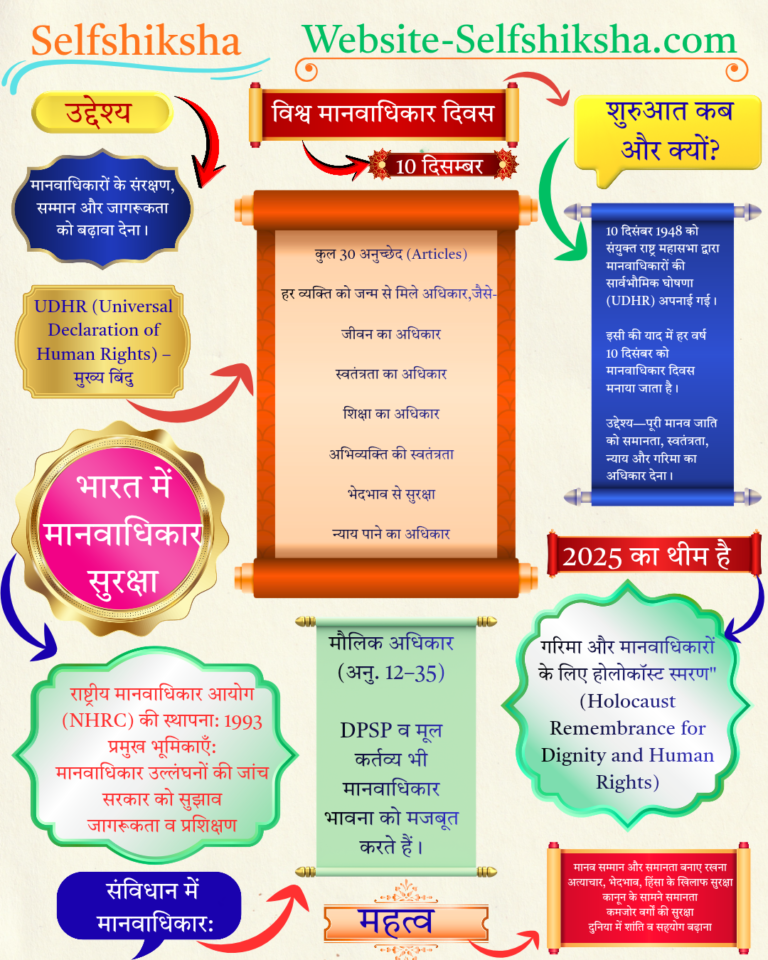 Selfshiksha
Website-Selfshiksha.com
उद्देश्य
मानवाधिकारों के संरक्षण,
सम्मान और जागरूकता
को बढ़ावा देना।
विश्व मानवाधिकार दिवस
10 दिसम्बर
शुरुआत कब
और क्यों?
10 दिसंबर 1948 को
संयुक्त राष्ट्र महासभा द्वारा
मानवाधिकारों की
सार्वभौमिक घोषणा
(UDHR) अपनाई गई।
इसी की याद में हर वर्ष
10 दिसंबर को
मानवाधिकार दिवस
मनाया जाता है।
उद्देश्य—पूरी मानव जाति
को समानता, स्वतंत्रता,
न्याय और गरिमा का
अधिकार देना।
UDHR (Universal
Declaration of
Human Rights) –
मुख्य बिंदु
कुल 30 अनुच्छेद (Articles)
हर व्यक्ति को जन्म से मिले अधिकार,जैसे-
जीवन का अधिकार
स्वतंत्रता का अधिकार
शिक्षा का अधिकार
अभिव्यक्ति की स्वतंत्रता
भेदभाव से सुरक्षा
न्याय पाने का अधिकार
भारत में
मानवाधिकार
सुरक्षा
राष्ट्रीय मानवाधिकार आयोग
(NHRC) की स्थापना: 1993
प्रमुख भूमिकाएँ:
मानवाधिकार उल्लंघनों की जांच
सरकार को सुझाव
जागरूकता व प्रशिक्षण
संविधान में
मानवाधिकार:
मौलिक अधिकार
(अनु. 12–35)
DPSP व मूल
कर्तव्य भी
मानवाधिकार
भावना को मजबूत
करते हैं।
2025 का थीम है
गरिमा और मानवाधिकारों
के लिए होलोकॉस्ट स्मरण"
(Holocaust
Remembrance for
Dignity and Human
Rights)
महत्व
मानव सम्मान और समानता बनाए रखना
अत्याचार, भेदभाव, हिंसा के खिलाफ सुरक्षा
कानून के सामने समानता
कमजोर वर्गों की सुरक्षा
दुनिया में शांति व सहयोग बढ़ाना